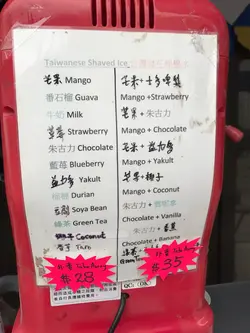 Taiwanese Shaved Ice
芒果 Mango
番石榴 Guava
牛奶 Milk
草莓 Strawberry
朱古力 Chocolate
藍莓 Blueberry
益力多 Yakult
榴槤 Durian
豆腐 Soya Bean
綠茶 Green Tea
椰子 Coconut
香芋 Taro
$28
芒果+士多啤梨
Mango +Strawberry
芒果+朱古力
Mango + Chocolate
芒果+益力多
Mango + Yakult
芒果+椰子
Mango + Coconut
朱古力+
Chocolate + Vanilla
朱古力+香蕉
Chocolate + Banana
$35